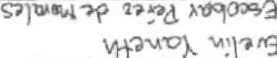 Evelin Yaneth
Escobar Pérez de Morales